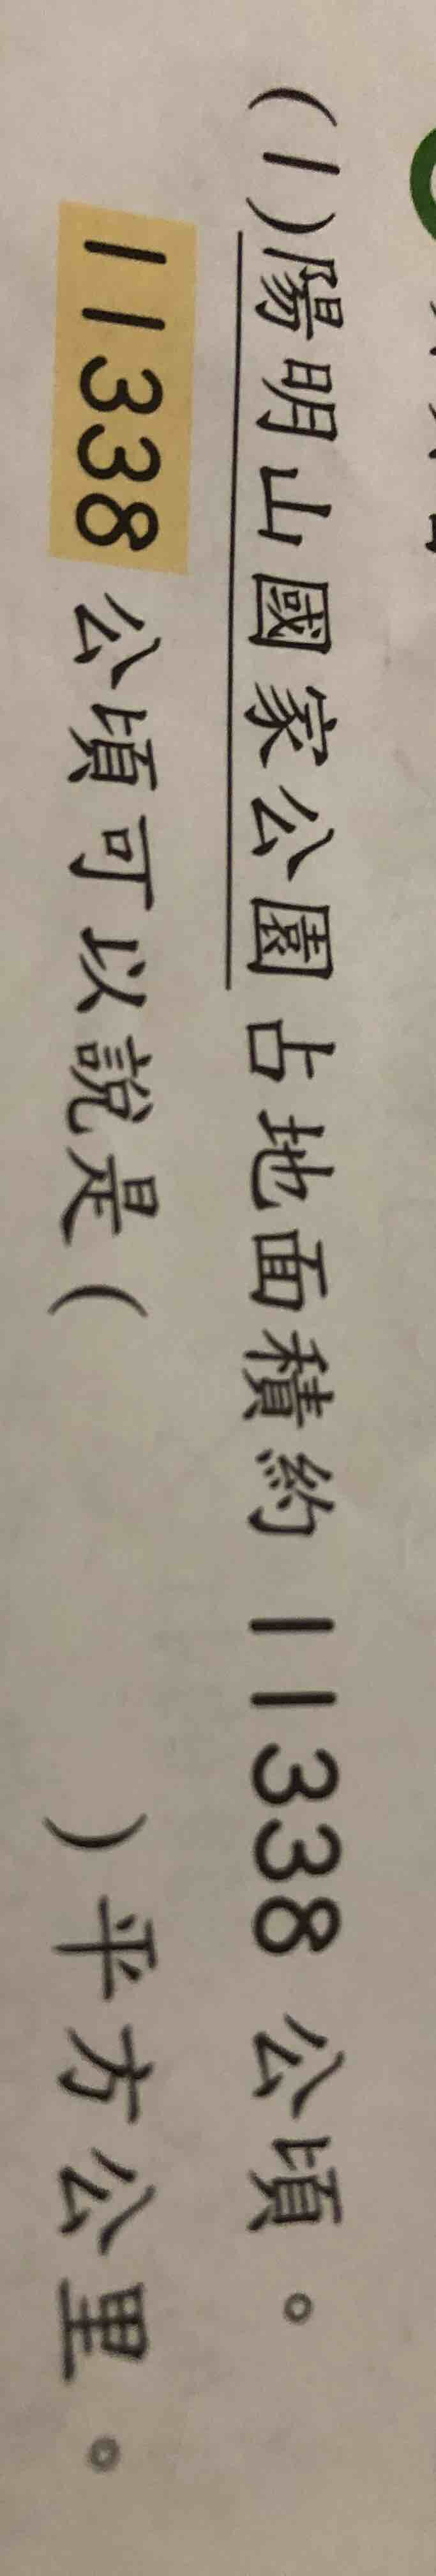 (1)陽明山國家公園占地面積約11338公頃。
11338公頃可以說是(　　　)平方公里。